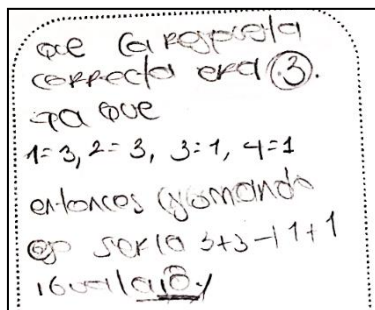 que la respuesta
correcta era 3.
ya que
1=3, 2=3, 3=1, 4=1
entonces sumando
eso seria 3+3+1+1
igual a 8